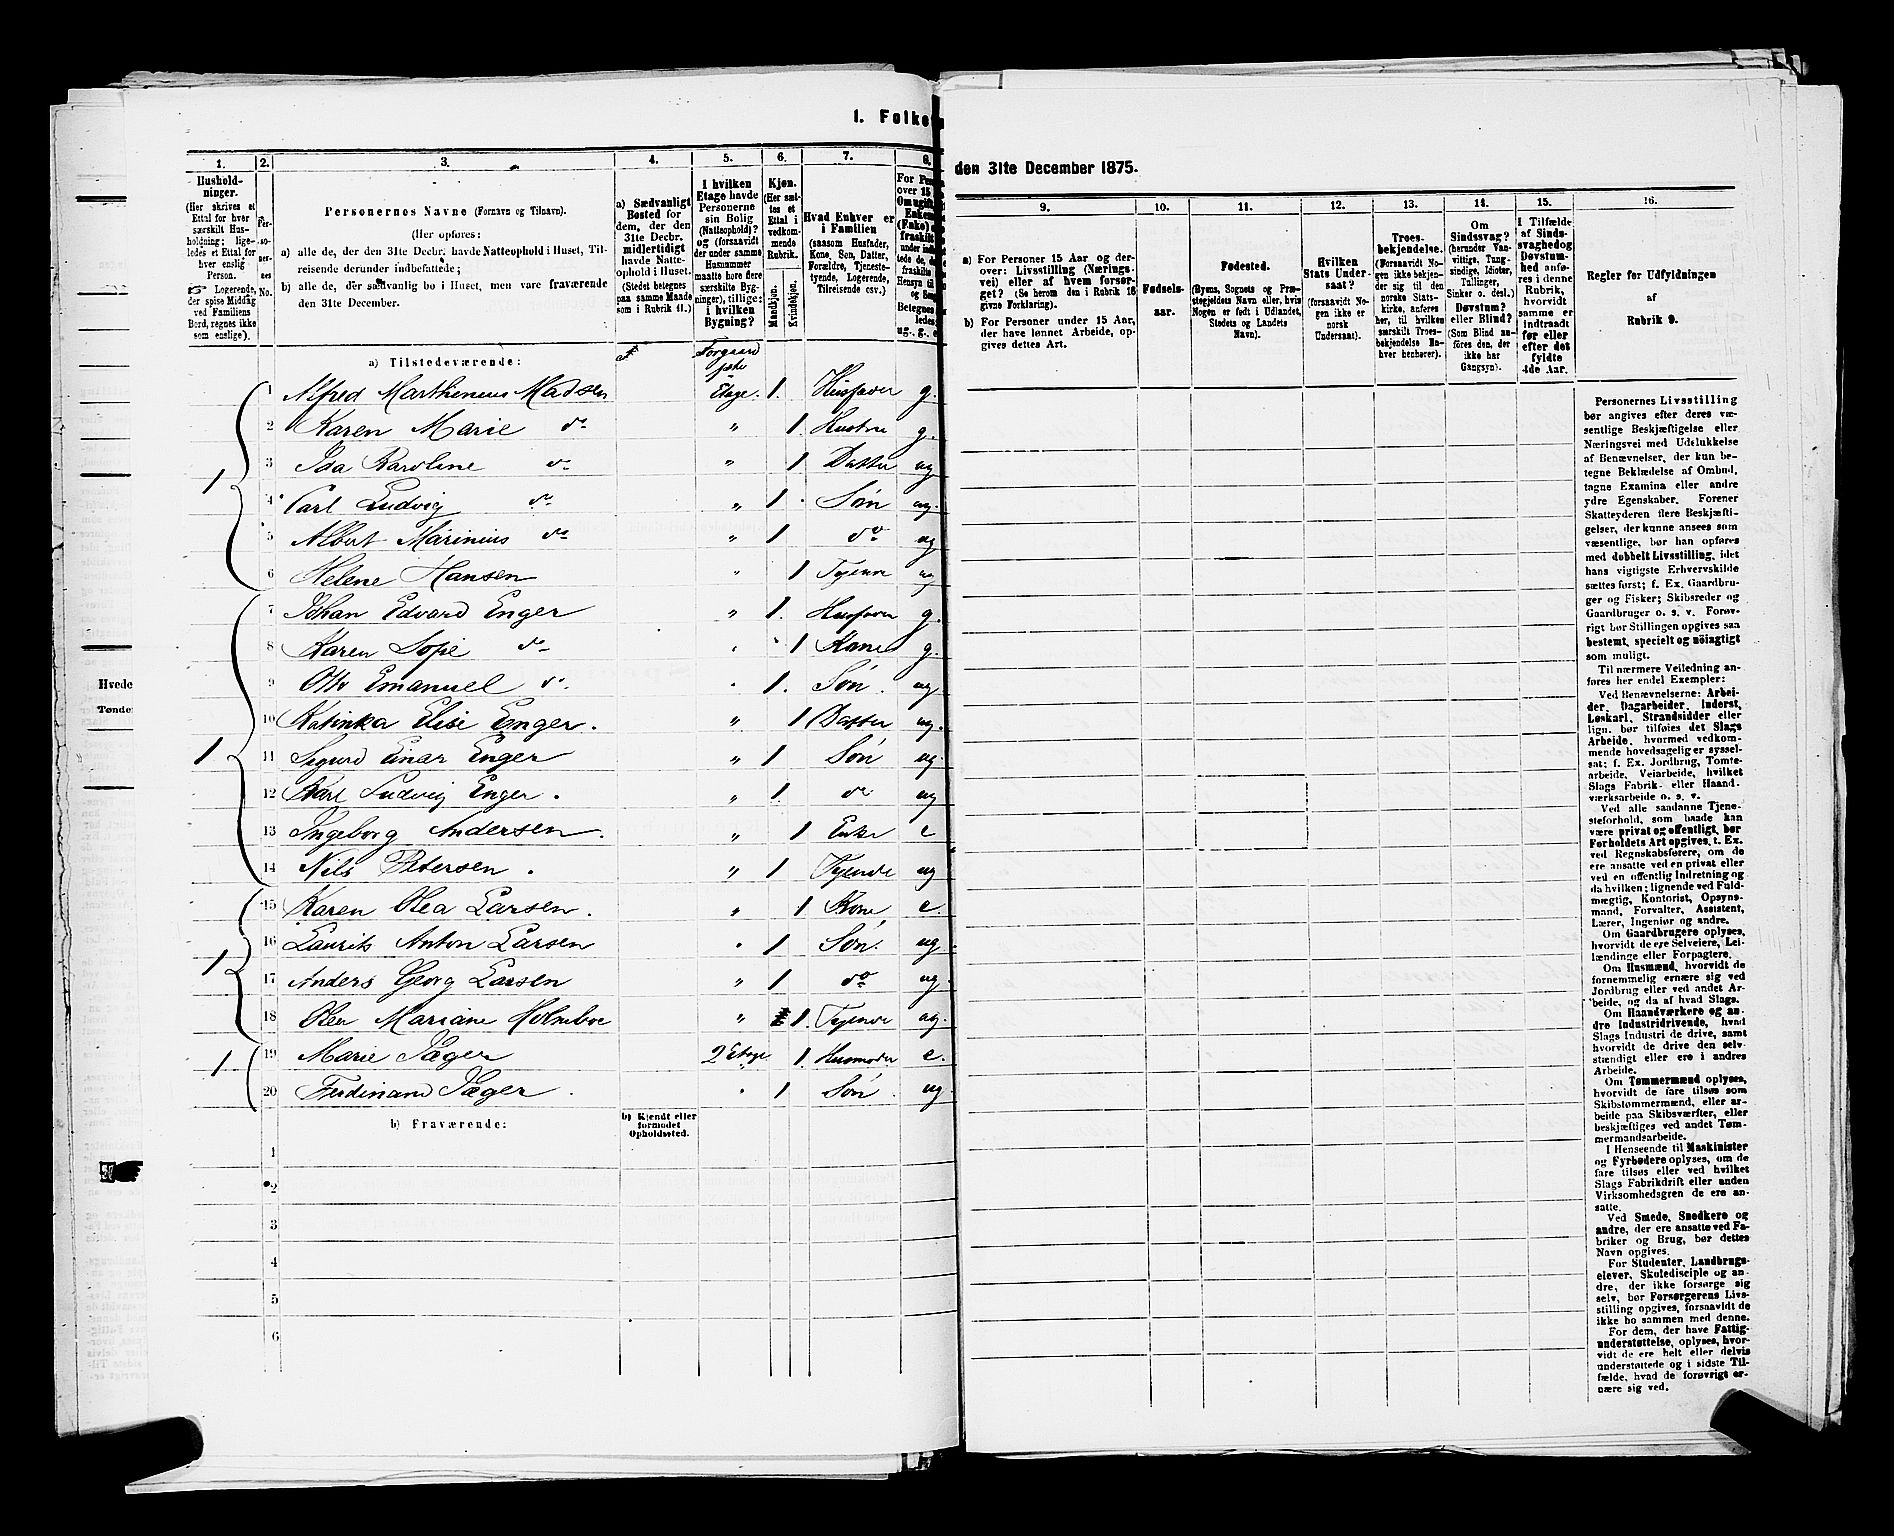 I. Folke
den 31te December 1875.
1. 2. 3. 4. 5. 6. 7. 8.
Hushold-
ninger.
(Her skrives et
Ettal for hver
særskilt Hus-
holdning; lige-
ledes et Ettal for
hver enslig
Person.
Logerende,
der spise Middag
ved Familiens
Bord, regnes ikke
som enslige).
Per-
so-
ner-
nes
No.
Personernes Navne (Fornavn og Tilnavn).
(Her opføres:
a) alle de, der den 31te Decbr. havde Natteophold i Huset, Til-
reisende derunder indbefattede;
b) alle de, der sædvanlig bo i Huset, men vare fraværende
den 31te December.
a) Sædvanligt
Bosted for
dem, der den
31te Decbr.
midlertidigt
havde Natte-
ophold i Huset.
(Stedet betegnes
paa samme Maade
som i Rubrik 11.)
I hvilken
Etage havde
Personerne
sin Bolig
(Natteophold)?
og (forsaavidt
der under samme
Husnummer
maatte høre flere
særskilte Byg-
ninger), tillige:
i hvilken
Bygning?
Kjøn.
(Her sæt-
tes et
Ettal i
vedkom-
mende
Rubrik.
Mandkjøn.
Kvindekjøn.
Hvad Enhver er
i Familien
(saasom Husfader,
Kone, Søn, Datter,
Forældre, Tjeneste-
tyende, Logerende,
Tilreisende osv.)
a) Tilstedeværende:
Forgaard
1ste
1 Alfred Marthineus Madsen Etage. 1. Husfader g.
2 Karen Marie do " 1 Hustru g.
3 Ida Karoline do " 1 Datter ug
4 Carl Ludvig do " 1 Søn ug.
5 Albert Marinius do " 1 do ug
6 Helene Hansen " 1 Tyende ug
7 Johan Edvard Enger " 1. Husfader g.
8 Karen Sofie do 1 Kone g.
9 Otto Emanuel do. 1. Søn. ug
10 Katinka Elise Enger. " 1 Datter ug.
11 Sigurd Einar Enger " 1 Søn ug.
12 Karl Ludvig Enger. " 1 do ug
13 Ingeborg Andersen. " 1 Enke e
14 Nils Petersen. " 1 Tyende ug
15 Karen Olea Larsen. " 1 Kone e.
16 Laurits Anton Larsen 1 Søn. ug
17 Anders Georg Larsen " 1 do ug.
18 Mariane Holmboe " 1. Tyende ug.
19 Marie Jæger 2 Etage 1. Husmoder e.
20 Ferdinand Jæger. 1 Søn. ug
1
1
1
1
b) Fraværende:
b) Kjendt eller
formodet
Opholdssted.
1
2
3
4
5
6
Hvede
Tønder
9. 10. 11. 12. 13. 14. 15. 16.
a) For Personer 15 Aar og der-
over: Livsstilling (Nærings-
vei) eller af hvem forsør-
get? (Se herom den i Rubrik 16
givne Forklaring).
b) For Personer under 15 Aar,
der have lønnet Arbeide, op-
gives dettes Art.
Fødsels-
aar.
Fødested.
(Byens, Sognets og Præ-
stegjeldets Navn eller, hvis
Nogen er født i Udlandet,
Stedets og Landets
Navn).
Hvilken
Stats Under-
saat?
(forsaavidt No-
gen ikke er
norsk
Undersaat).
Troes-
bekjendelse.
(Forsaavidt No-
gen ikke bekjen-
der sig til den
norske Stats-
kirke, anføres
her, til hvilken
særskilt Troes-
bekjendelse En-
hver henhører).
Om
Sindssvag?
(herunder Van-
vittige, Tung-
sindige, Idioter,
Tullinger,
Sinker o. desl.)
Døvstum?
eller Blind?
(Som Blind an-
føres den, der
ikke har
Gangsyn).
I Tilfælde
af Sinds-
svaghed og
Døvstum-
hed anfø-
res i denne
Rubrik,
hvorvidt
samme er
indtraadt
før eller
efter det
fyldte
4de Aar.
Regler for Udfyldningen
af
Rubrik 9.
Personernes Livsstilling
bør angives efter deres væ-
sentlige Beskjæftigelse eller
Næringsvei med Udelukkelse
af Benævnelser, der kun be-
tegne Beklædelse af Ombud,
tagne Examina eller andre
ydre Egenskaber. Forener
Skatteyderen flere Beskjæfti-
gelser, der kunne ansees som
væsentlige, bør han opføres
med dobbelt Livsstilling, idet
hans vigtigste Erhvervskilde
sættes først; f. Ex. Gaardbru-
ger og Fisker; Skibsreder og
Gaardbruger o. s. v. Forøv-
rigt bør Stillingen opgives saa
bestemt, specielt og nöiagtigt
som muligt.
Til nærmere Veiledning an-
føres her endel Exempler:
Ved Benævnelserne: Arbei-
der, Dagarbeider, Inderst,
Løskarl, Strandsidder eller
lign. bør tilføies det Slags
Arbeide, hvormed vedkom-
mende hovedsagelig er syssel-
sat; f. Ex. Jordbrug, Tomte-
arbeide, Veiarbeide, hvilket
Slags Fabrik- eller Haand-
værksarbeide o. s. v.
Ved alle saadanne Tjene-
steforhold, som baade kan
være privat og offentligt, bør
Forholdets Art opgives, t. Ex.
ved Regnskabsførere, om de
ere ansatte ved en privat eller
ved en offentlig Indretning og
da hvilken; lignende ved Fuld-
mægtig, Kontorist, Opsyns-
mand, Forvalter, Assistent,
Lærer, Ingeniør og andre.
Om Gaardbrugere oplyses,
hvorvidt de ere Selveiere, Lei-
lændinge eller Forpagtere.
Om Husmænd, hvorvidt de
fornemmelig ernære sig ved
Jordbrug eller ved andet Ar-
beide, og da af hvad Slags.
Om Haandværkere og an-
dre Industridrivende, hvad
Slags Industri de drive, samt
hvorvidt de drive den selv-
stændigt eller ere i andres
Arbeide.
Om Tømmermænd oplyses,
hvorvidt de fare tilsøs som
Skibstømmermænd, eller ar-
beide paa Skibsværfter, eller
beskjæftiges ved andet Tøm-
mermandsarbeide.
I Henseende til Maskinister
og Fyrbødere oplyses, om de
fare tilsøs eller ved hvilket
Slags Fabrikdrift eller anden
Virksomhedsgren de ere an-
satte.
Ved Smede, Snedkere og
andre, der ere ansatte ved Fa-
briker og Brug, bør dettes
Navn opgives.
For Studenter, Landbrugs-
elever, Skoledisciple og an-
dre, der ikke forsørge sig
selv, bør Forsørgerens Livs-
stilling opgives, forsaavidt de
ikke bo sammen med denne.
For dem, der have Fattig-
understøttelse, oplyses, hvor-
vidt de ere helt eller delvis
understøttede og i sidste Til-
fælde, hvad de forøvrigt er-
nære sig ved.